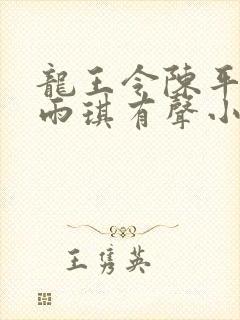 龍王令陳平
雨琪有聲小
王雋英